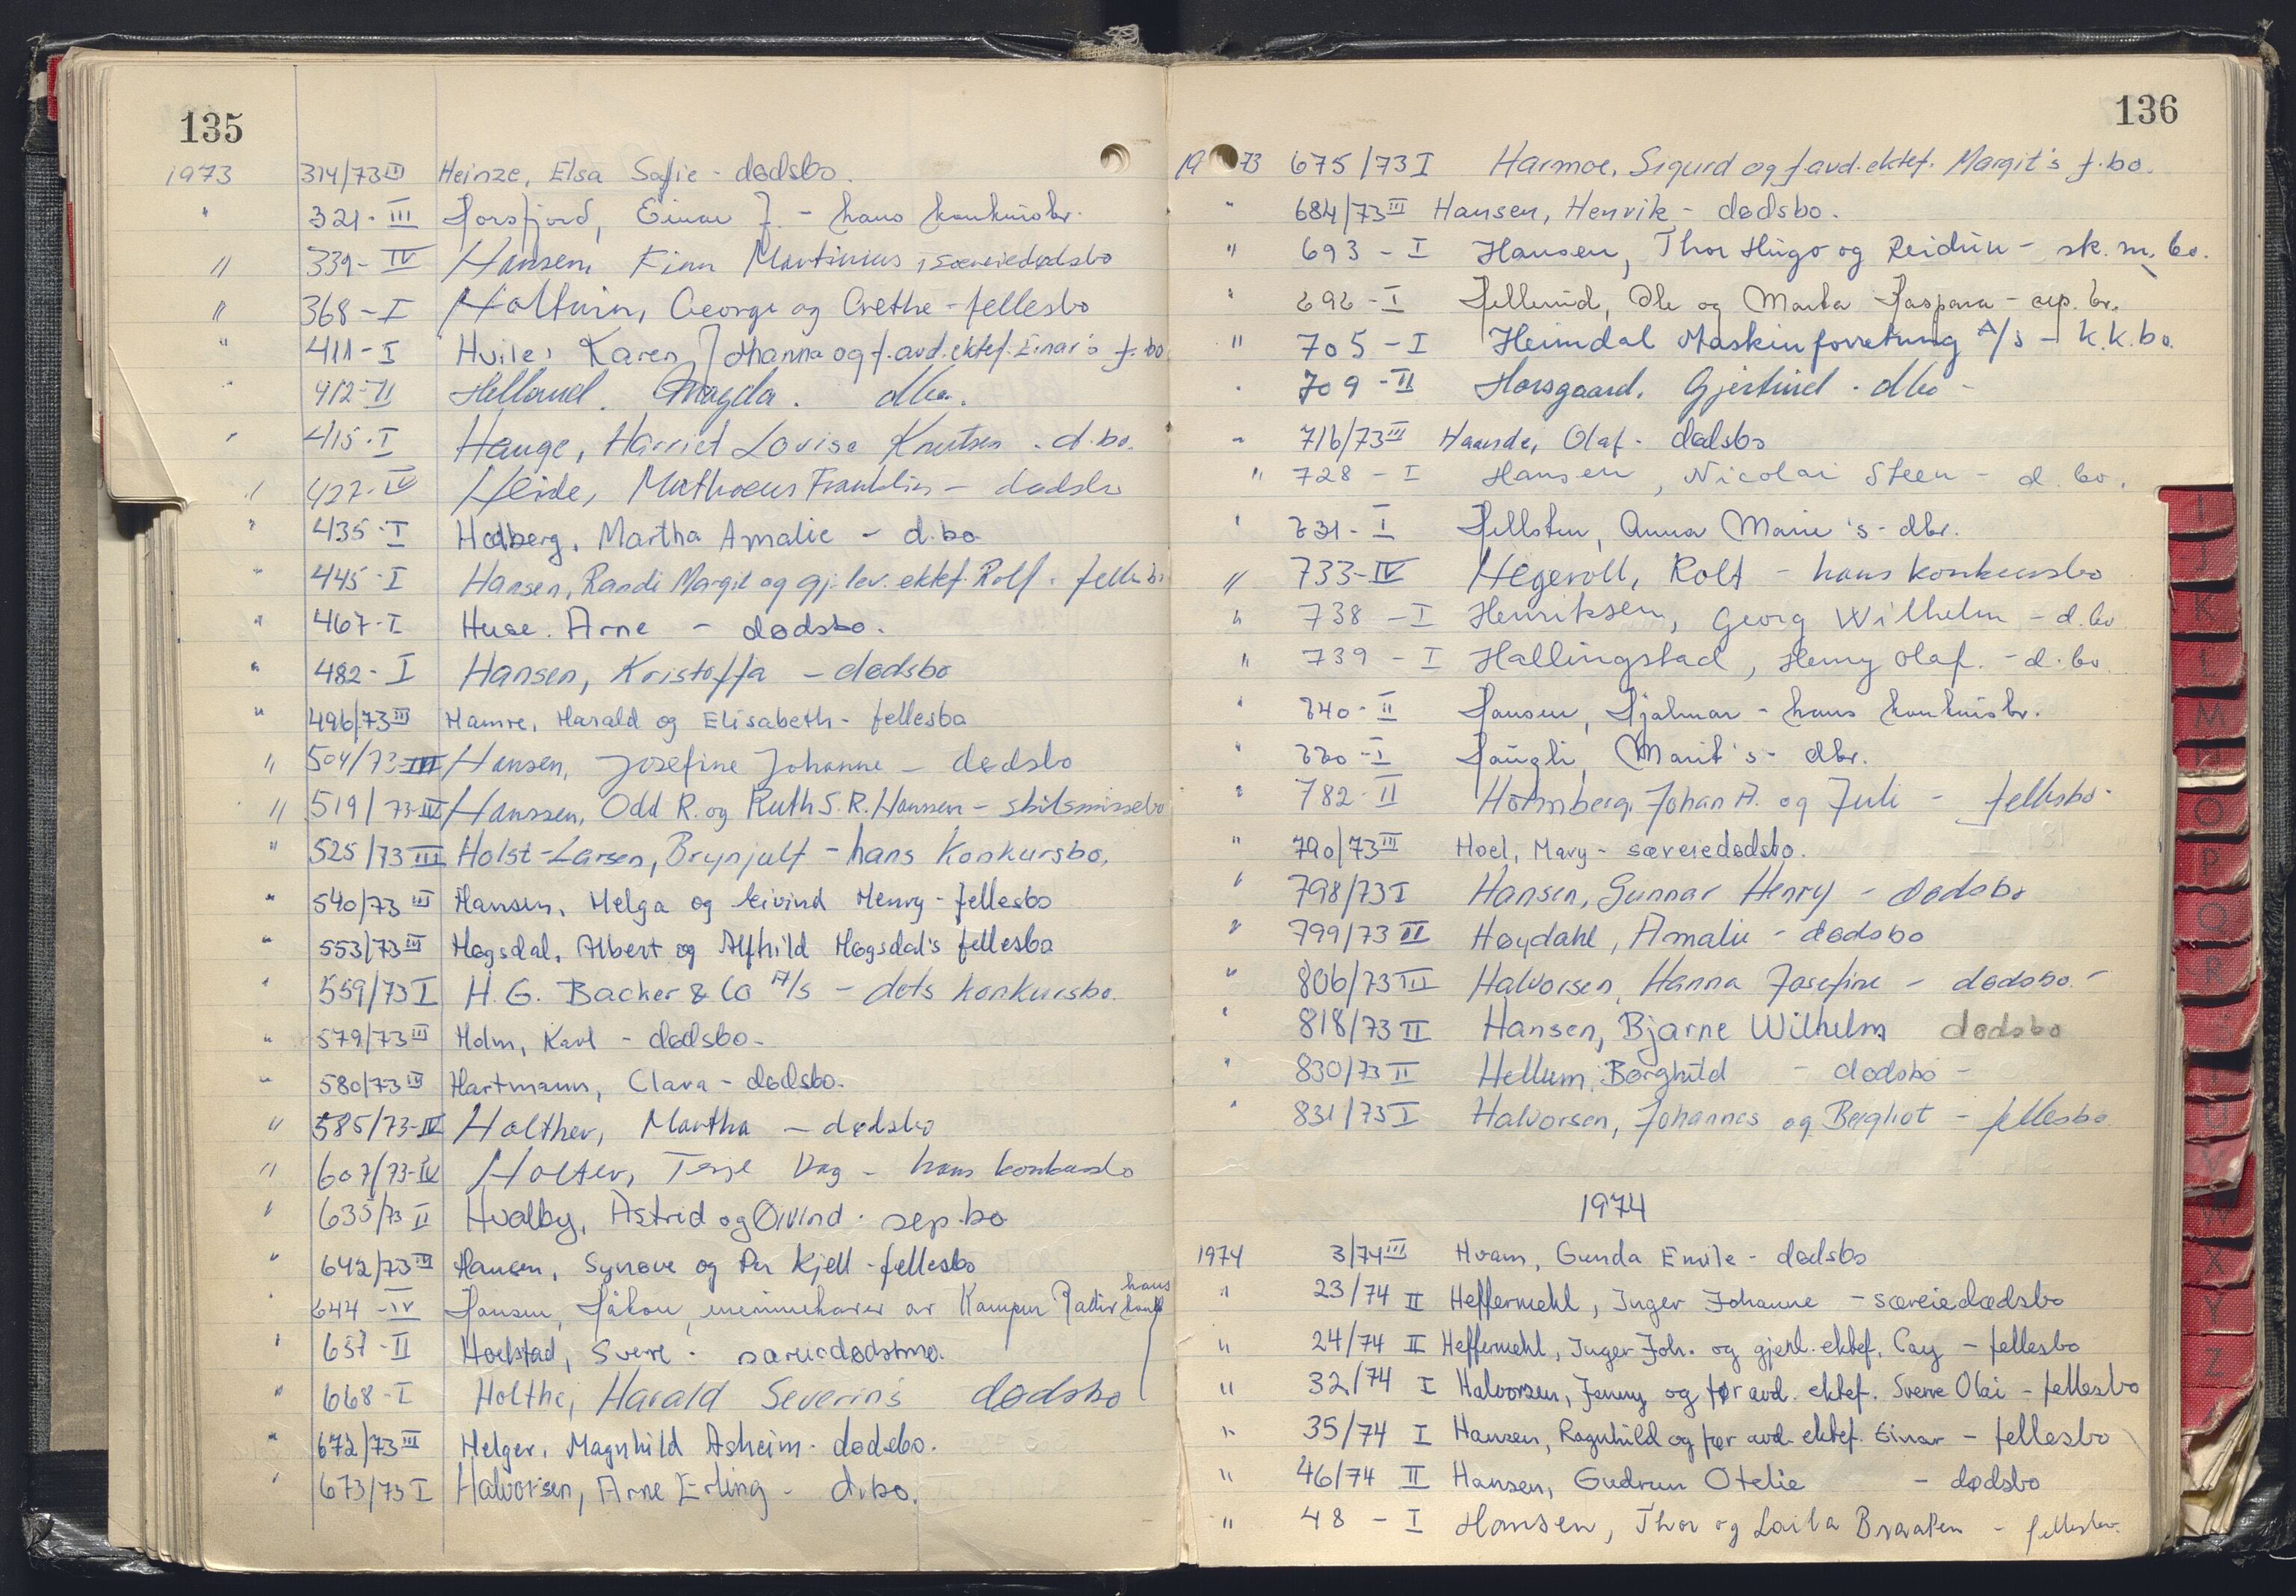 135
1973 314/73 III Heinze, Elsa Sofie - dødsbo.
" 321 - III Horsfjord, Einar J. - hans konkursbo.
" 339 - IV Hansen, Finn Martinius, særeiedødsbo
" 368 - I Georg og Grethe - fellesbo
" 411 - I Hvile, Karen Johanna og f.avd.ektef. Einar's f.bo
" 412 - II Helland. Magda. dbo.
" 415 - I Hauge, Harriet Lovise Knutsen - d.bo.
" 427 - IV Heide, Mathoeus Franklin - dødsbo
" 435 - I Hedberg, Martha Amalie - d.bo
" 445 - I Hansen, Randi Margit og gj.lev. ektef. Rolf - fellesbo
" 467 - I Huse. Arne - dødsbo.
" 482 - I Hansen, Kristoffa - dødsbo
" 496/73 III Hamre, Harald og Elisabeth - fellesbo
" 504/73 III Hansen, Josefine Johanne - dødsbo
" 519/73-III Hanssen, Odd R. og Ruth S. R. Hanssen - skilsmissebo
" 525/73 III Holst-Larsen, Brynjulf - hans konkursbo.
" 540/73 III Hansen, Helga og Eivind Henry - fellesbo
" 553/73 III Høgsdal, Albert og Alfhild Høgsdal's fellesbo
" 559/73 I H. G. Backer & Co A/S - dets konkursbo.
" 579/73 III Holm, Karl - dødsbo -
" 580/73 IV Hartmann, Clara - dødsbo.
" 585/73-IV Holther, Martha - dødsbo
" 607/73-IV Holter, Terje Dag - hans konkursbo
" 635/73 II Hvalby, Astrid og Øivind - sep.bo
" 642/73 III Hansen, Synnøve og Per Kjell - fellesbo
" 644 - IV Hansen, Håkon, innehaver av hans
" 657 - II Hoelstad, Sverre -
" 668 - I Holthe, Harald Severin's dødsbo
" 672/73 III Helger, Magnhild Asheim - dødsbo.
" 673/73 I Halvorsen, Arne Erling - d.bo.
136
1973 675/73 I Harmoe, Sigurd og f.avd.ektef. Margit's f.bo.
" 684/73 III Hansen, Henrik - dødsbo.
" 693 - I Hansen, Thor Hugo og Reidun - sk.m.bo.
" 696 - I Hellerud, Ole og Marta Kaspara - sep.bo.
" 705 - I Heimdal Maskinforretning A/S - k.k.bo.
" 709 - II Horsgaard. Gjertrud - dbo -
" 716/73 III Haande, Olaf - dødsbo
" 728 - I Hansen, Nicolai Steen - d.bo.
" 731 - I Hellsten, Anna Marie's - dbo.
" 733-IV Hegervoll, Rolf - hans konkursbo
" 738 - I Henriksen, Georg Wilhelm - d.bo
" 739 - I Hallingstad, Henry Olaf. - d.bo
" 740 - II Hansen, Hjalmar - hans konkursbo.
" 770 - I Haugli, Marit's - dbo.
" 782 - II Holmberg, Johan A. og Juli - fellesbo -
" 790/73 III Hoel, Mary - særeiedødsbo.
" 798/73 I Hansen, Gunnar Henry - dødsbo
" 799/73 II Høydahl, Amalie - dødsbo
" 806/73 III Halvorsen, Hanna Josefine - dødsbo. -
" 818/73 II Hansen, Bjarne Wilhelm dødsbo
" 830/73 II Hellum, Borghild - dødsbo -
" 831/73 I Halvorsen, Johannes og Bergliot - fellesbo
1974
1974 3/74 III Hvam, Gunda Emile - dødsbo
" 23/74 II Heffermehl, Inger Johanne - særeiedødsbo
" 24/74 II Heffermehl, Inger Joh. og gjenl. ektef. Cay - fellesbo
" 32/74 I Halvorsen, Jenny og før avd. ektef. Sverre Olai - fellesbo
" 35/74 I Hansen, Ragnhild og før avd. ektef. Einar - fellesbo
" 46/74 II Hansen, Gudrun Otelie - dødsbo
" 48 - I Hansen, Thor og Laila Braaten - fellesbo.
I
J
K
L
M
N
O
P
Q
R
U
V
W
X
Y
Z